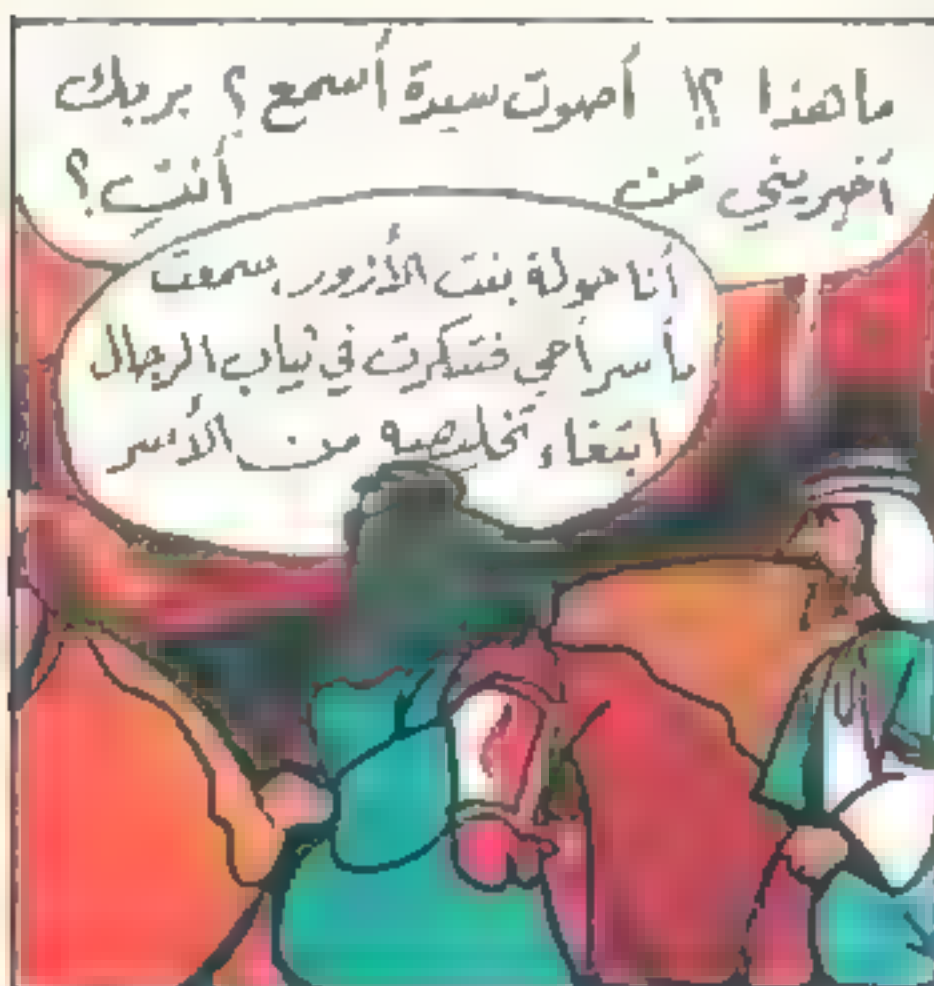 ما هذا ؟! أصوت سيدة أسمع ؟ بربك
أخبريني مَن أنتِ ؟
أنا خولة بنت الأزور . سمعت
بأسر أخي فتنكرت في ثياب الرجال
ابتغاء تخليصه من الأسر